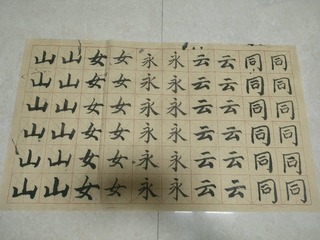 山山女女永永云云同同
山山女女永永云云同同
山山女女永永云云同同
山山女女永永云云同同
山山女女永永云云同同
山山女女永永云云同同